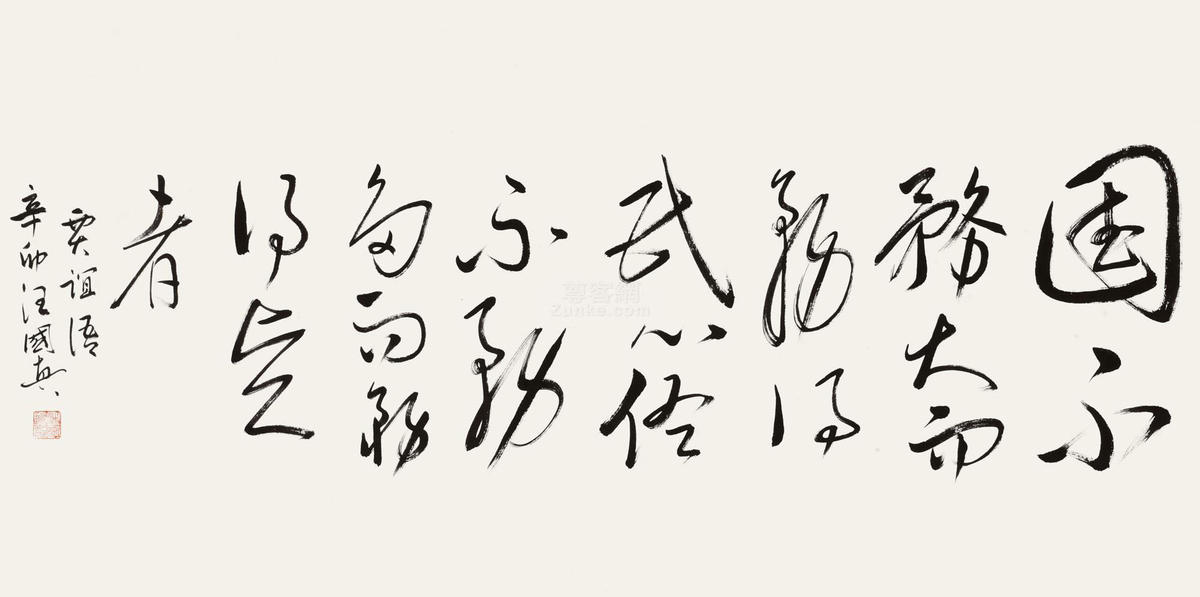 国不
務大而
務得
民心佐
不務
多而務
得賢
者
賈誼語
辛卯汪國真
尊客網
Zunke.com